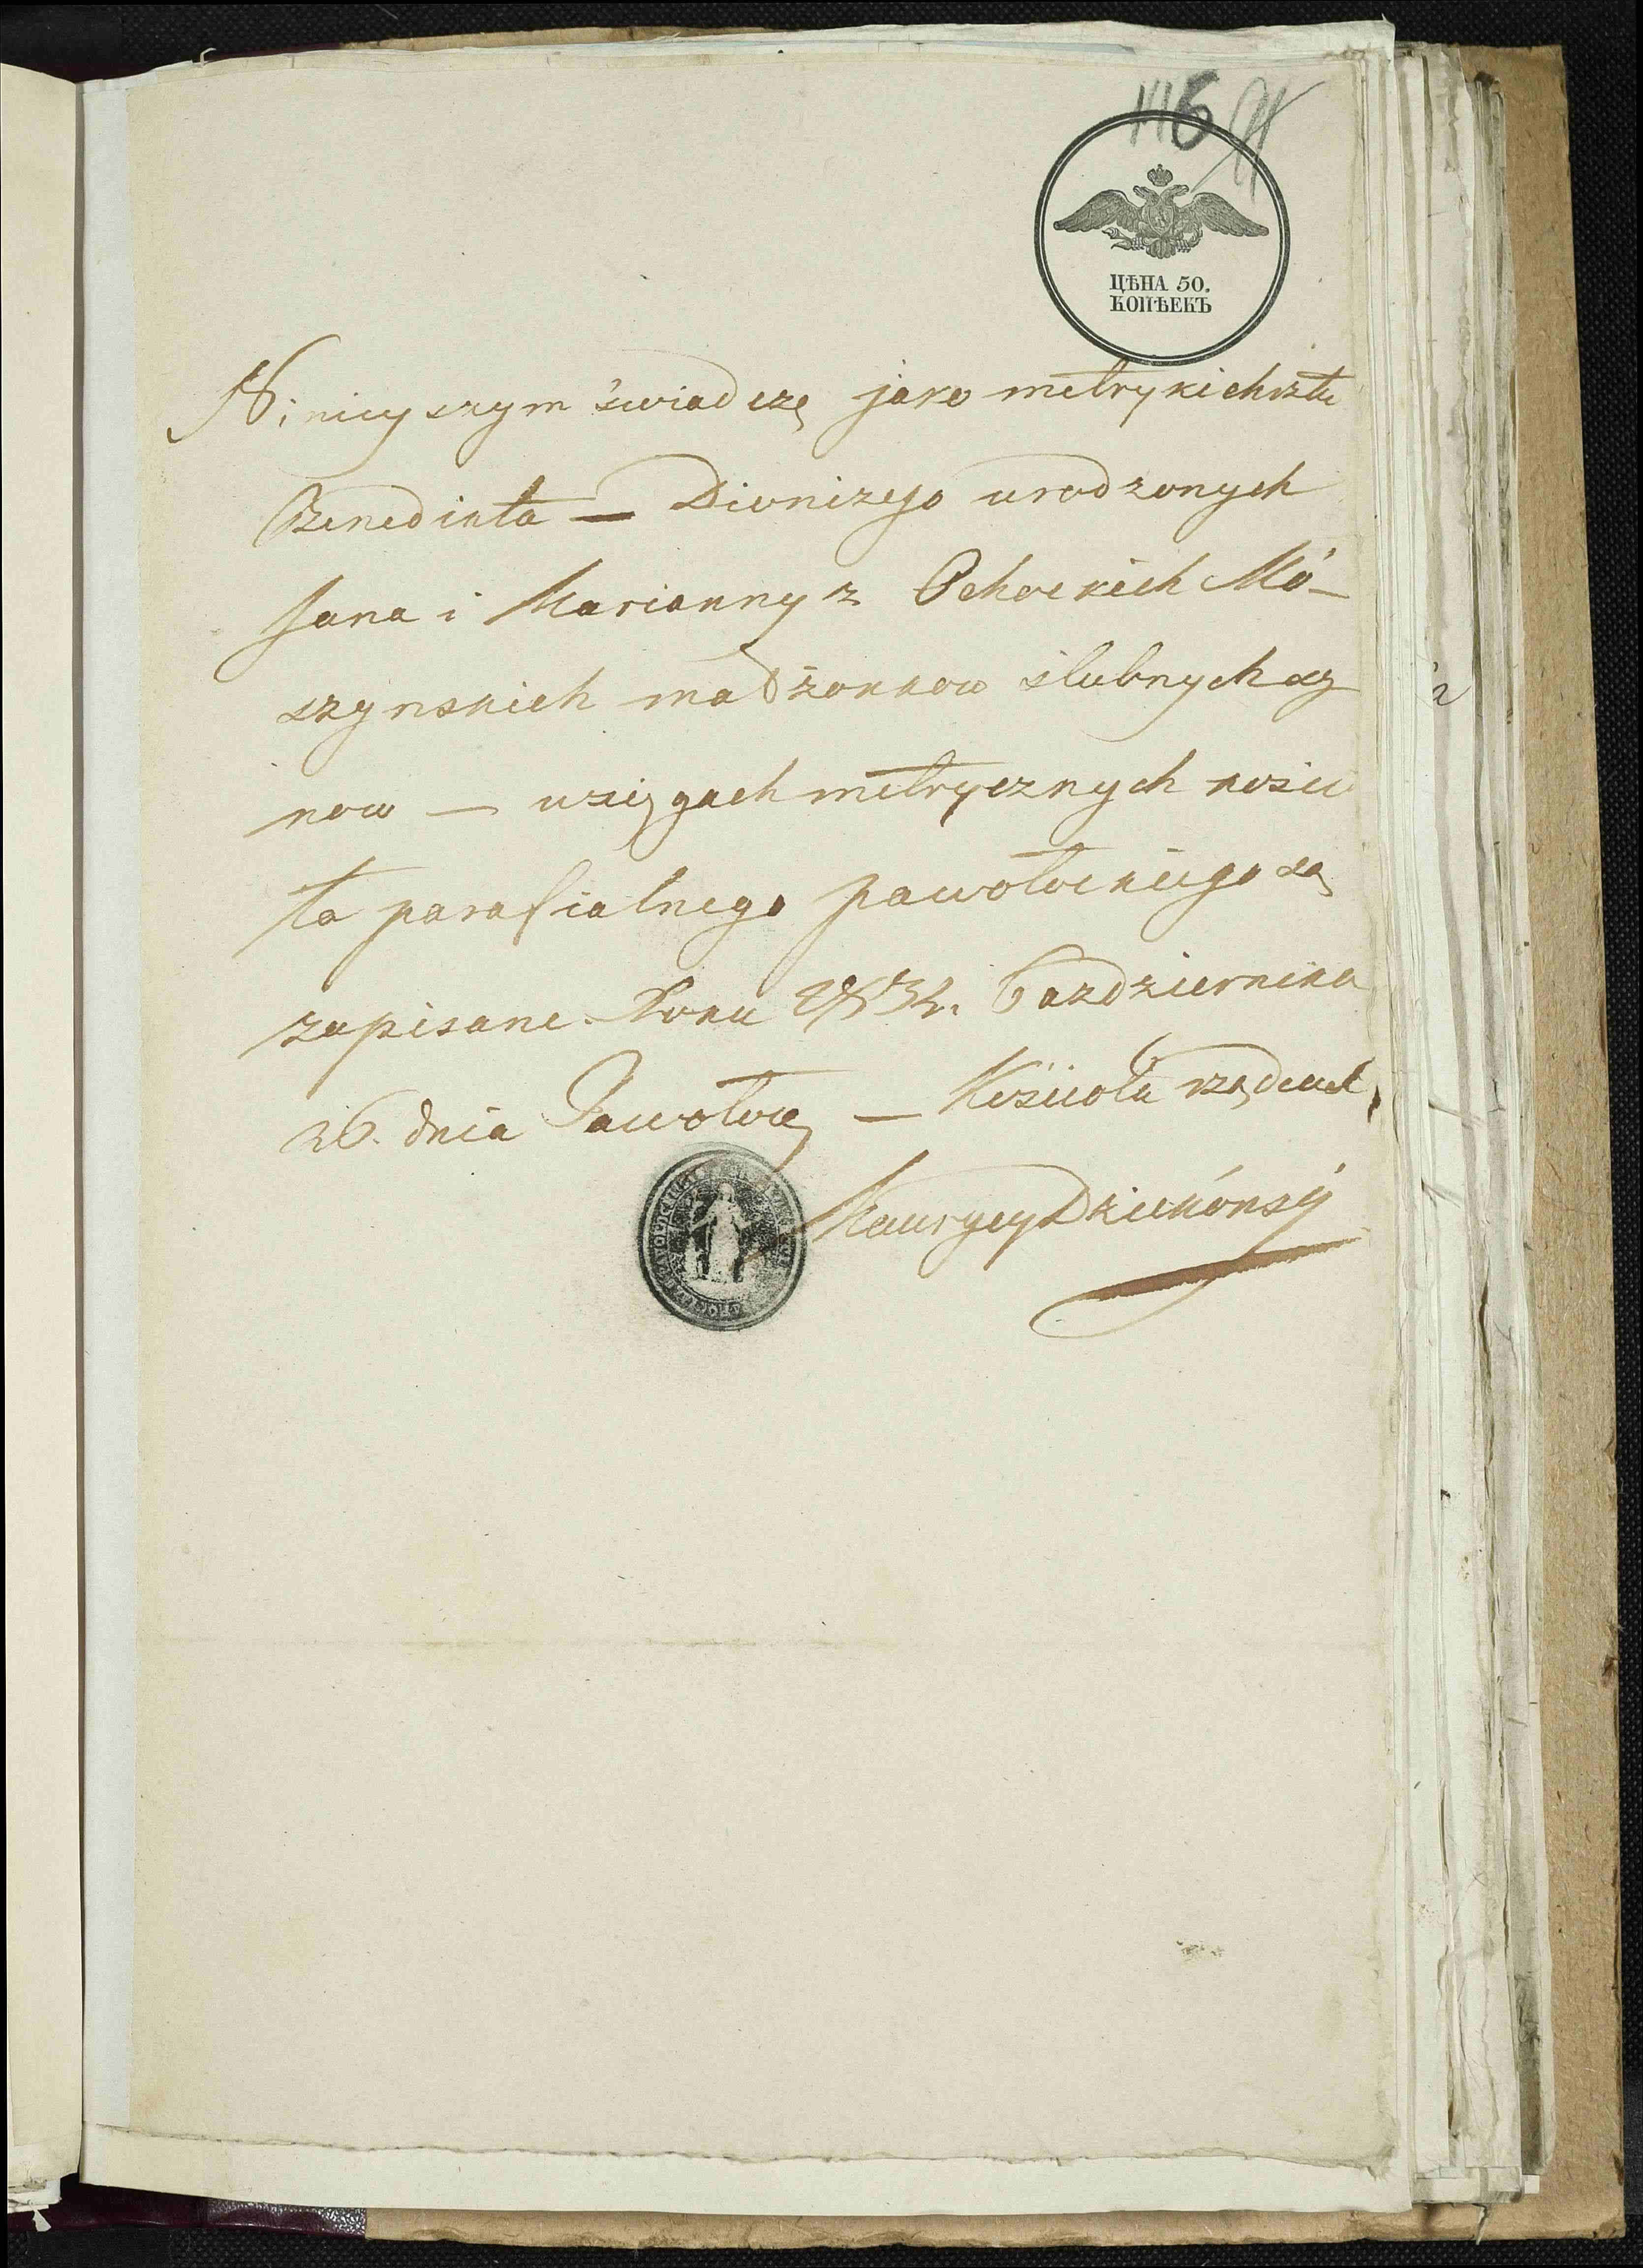 116
ЦѢНА 50.
КОПѢЕКЪ
Ninieyszym świadczę jako metryki chrztu
Benedikta — Dionizego urodzonych
Jana i Marianny z Ochockich Mó-
szynskich małżonkow ślubnych sy
now — w xięgach metrycznych kościo
ła parafialnego pawołockiego są
zapisane. Roku 1834. Października
26. dnia Pawołocz — Kościoła rządca
Maurycy